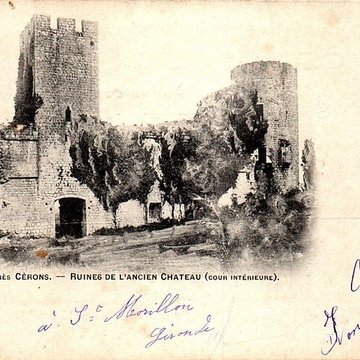 RÈS CÉRONS. — RUINES DE L'ANCIEN CHATEAU (COUR INTÉRIEURE).
à St Morillon
Gironde